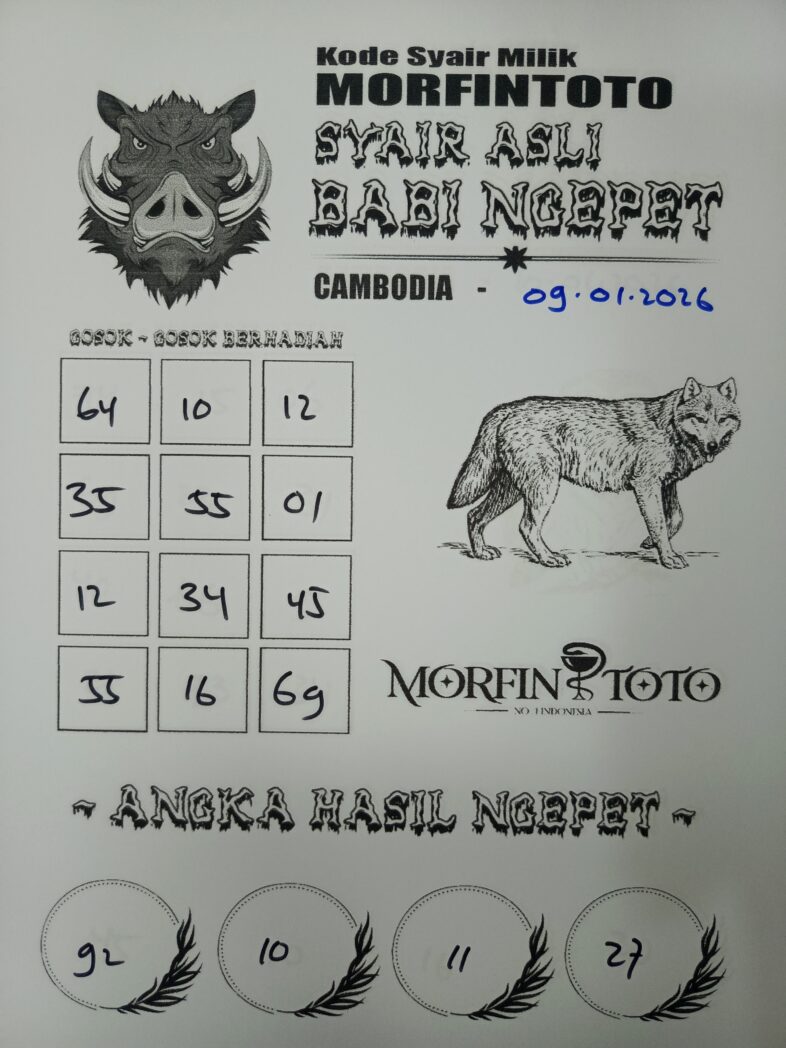 Kode Syair Milik
MORFINTOTO
SYAIR ASLI
BABI NGEPET
CAMBODIA - 09.01.2026
GOSOK - GOSOK BERHADIAH
64 10 12
35 55 01
12 34 45
55 16 69
MORFIN TOTO
NO 1 INDONESIA
~ ANGKA HASIL NGEPET ~
92 10 11 27